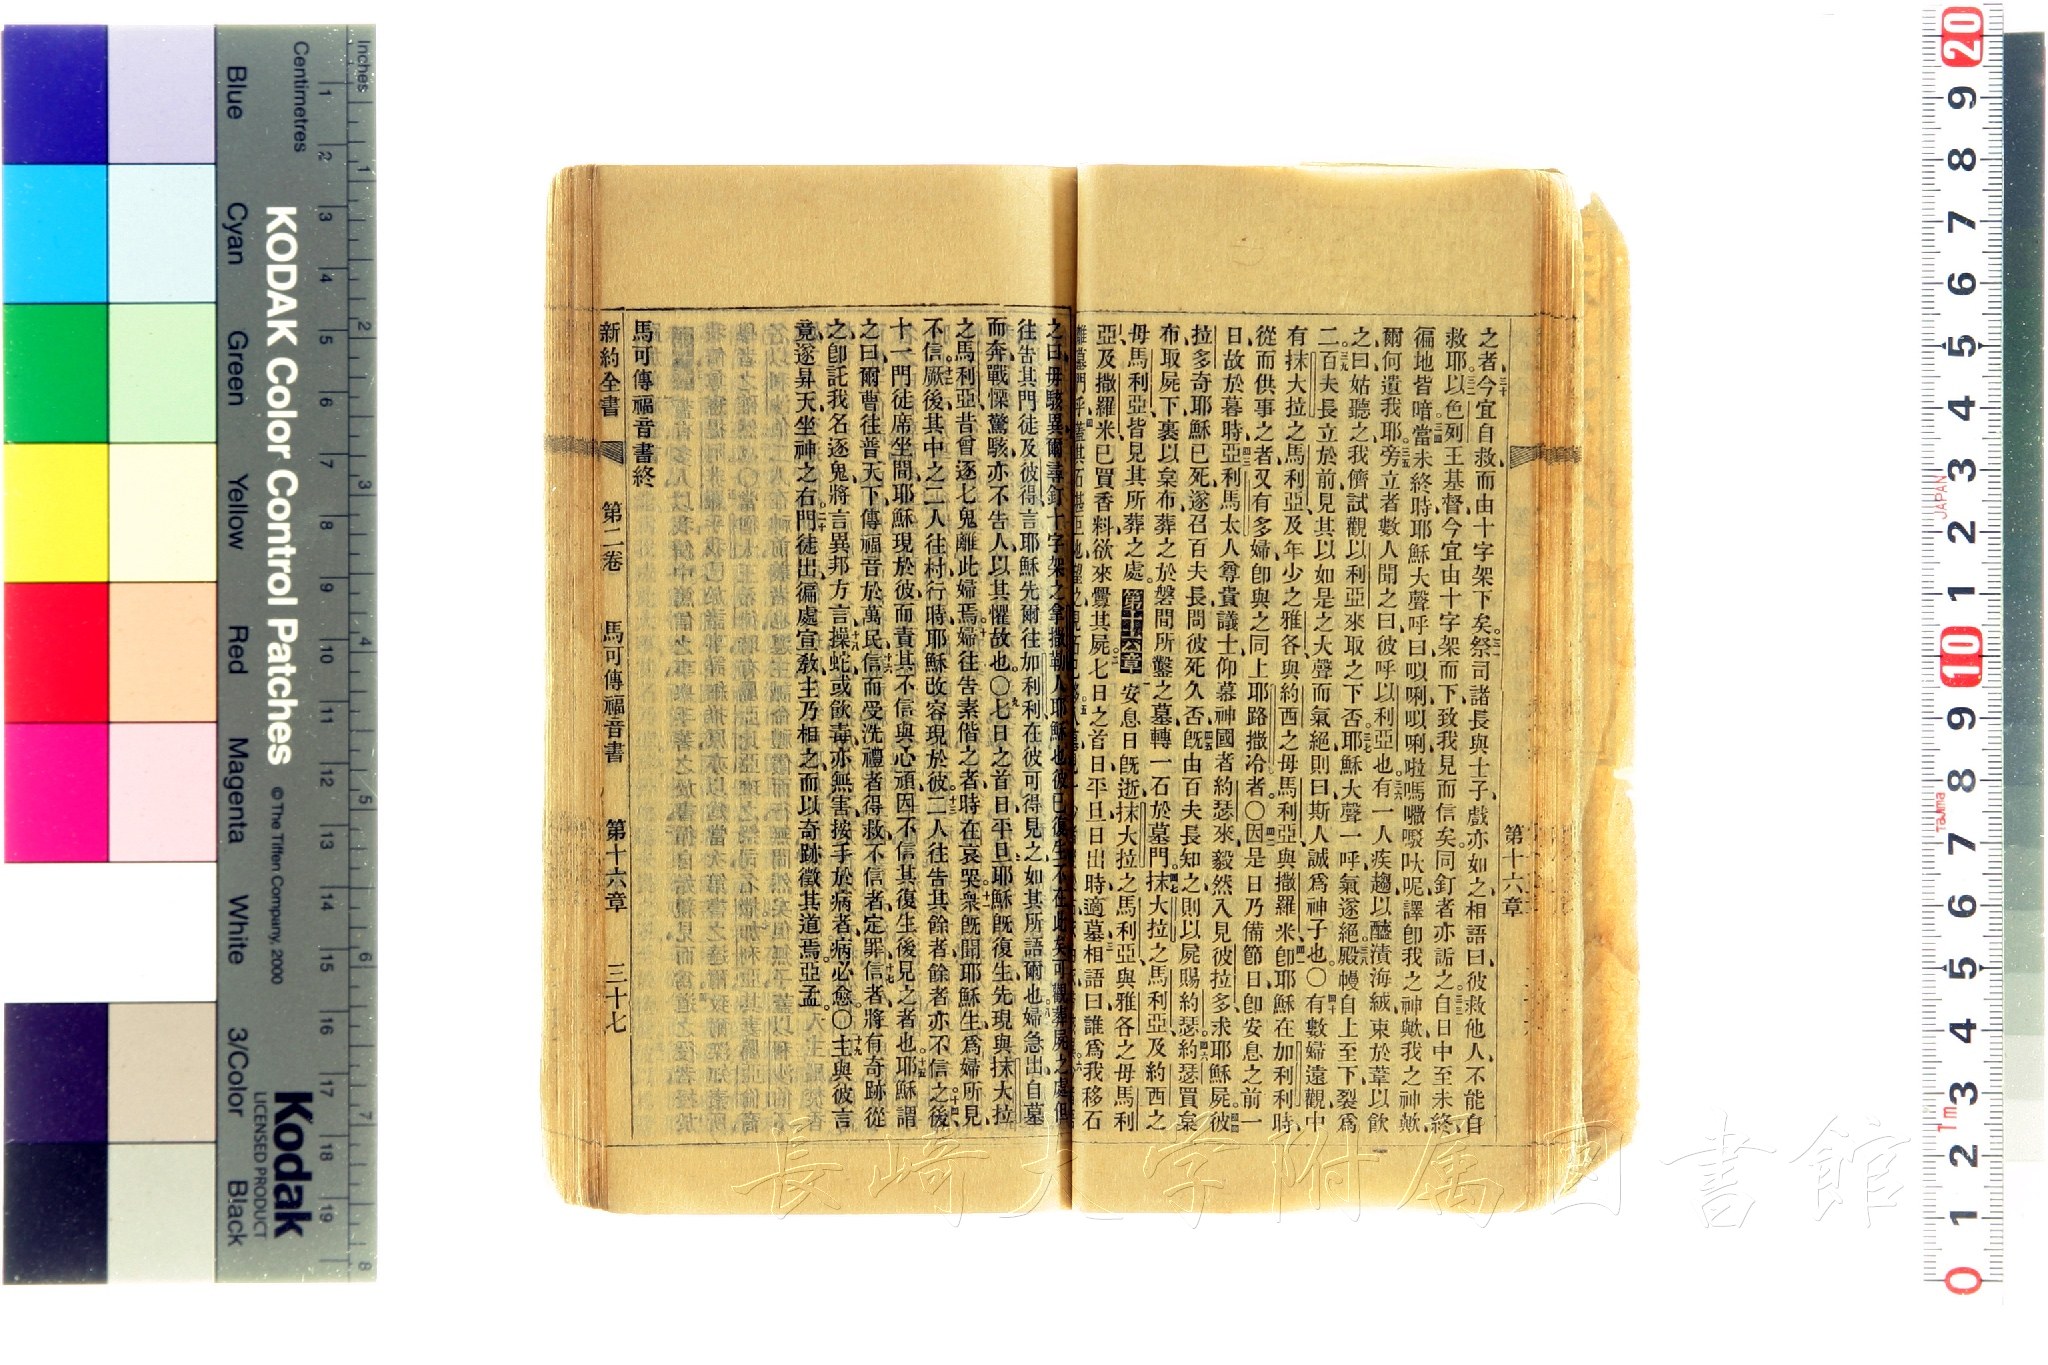 之者、三十今宜自救而由十字架下矣。三一祭司諸長與士子戲亦如之、相語曰、彼救他人、不能自
救耶。三二以色列王基督、今宜由十字架而下、致我見而信矣、同釘者亦詬之。三三自日中至未終、
徧地皆暗。三四當未終時、耶穌大聲呼曰、㕥唎㕥唎啦嗎
爾何遺我耶。三五旁立者數人聞之曰、彼呼以利亞也。三六有一人疾趨、以醯漬海絨、束於葦以飲
之曰、姑聽之、我儕試觀以利亞來取之下否。三七耶穌大聲一呼、氣遂絕。三八殿幔自上至下、裂爲
二。三九百夫長立於前、見其以如是之大聲而氣絕、則曰、斯人誠爲神子也。〇四十有數婦遠觀、中
有抹大拉之馬利亞、及年少之雅各與約西之母馬利亞、與撒羅米、四一卽耶穌在加利利時、
從而供事之者、又有多婦、卽與之同上耶路撒冷者。〇四二因是日乃備節日、卽安息之前一
日、故於暮時、四三亞利馬太人、尊貴議士、仰慕神國者約瑟來、毅然入見彼拉多、求耶穌屍。四四彼
拉多奇耶穌已死、遂召百夫長、問彼死久否、四五旣由百夫長知之、則以屍賜約瑟。四六約瑟買枲
布、取屍下、裹以枲布、葬之於磐間所鑿之墓、轉一石於墓門。四七抹大拉之馬利亞、及約西之
母馬利亞、皆見其所葬之處。第十六章 一安息日旣逝、抹大拉之馬利亞、與雅各之母馬利
亞、及撒羅米、已買香料、欲來釁其屍。二七日之首日、平旦日出時、適墓、三相語曰、誰爲我移石
之曰、毋駭異、爾尋釘十字架之拿撒勒人耶穌也、彼已復生、不在此矣、可觀葬屍之處、
往告其門徒及彼得、言耶穌先爾往加利利、在彼可得見之、如其所語爾也。八婦急出自墓
而奔、戰慄驚駭、亦不告人、以其懼故也。〇九七日之首日平旦、耶穌旣復生、先現與抹大拉
之馬利亞、昔曾逐七鬼離此婦焉。十婦往告素偕之者、時在哀哭、十一衆旣聞耶穌生、爲婦所見、
不信。十二厥後其中之二人、往村行時、耶穌改容現於彼、十三二人往告其餘者、餘者亦不信之。十四後
十一門徒席坐間、耶穌現於彼、而責其不信與心頑、因不信其復生後見之者也。十五耶穌謂
之曰、爾曹往普天下、傳福音於萬民、十六信而受洗禮者得救、不信者定罪、十七信者將有奇跡從
之、卽託我名逐鬼、將言異邦方言、十八操蛇、或飮毒、亦無害、按手於病者、病必愈。〇十九主與彼言
竟、遂昇天、坐神之右。二十門徒出、徧處宣敎、主乃相之、而以奇跡徵其道焉、亞孟。
馬可傳福音書終
新約全書 第二卷 馬可傳福音書 第十六章 三十七
第十六章
長崎大学附属図書館
Inches
Centimetres
KODAK Color Control Patches
© The Tiffen Company, 2000
Kodak
LICENSED PRODUCT
Blue
Cyan
Green
Yellow
Red
Magenta
White
3/Color
Black
JAPAN
Tajima
Tm